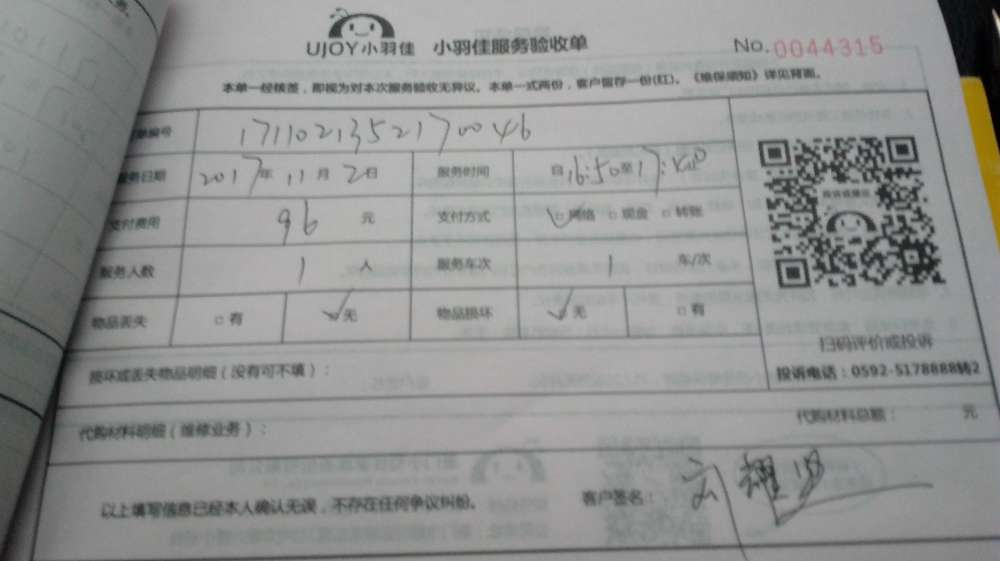 UJOY小羽佳 小羽佳服务验收单 No.0044315
本单一经核签，即视为对本次服务验收无异议。本单一式两份，客户留存一份(红)。《维保须知》详见背面。
单编号 17110213521170046
服务日期 2017年11月2日 服务时间 自16:50至17:40
支付费用 96 元 支付方式 ☑网络 □现金 □转账
服务人数 1 人 服务车次 1 车/次
物品丢失 □有 ☑无 物品损坏 ☑无 □有
扫码评价或投诉
投诉电话：0592-5178888转2
损坏或丢失物品明细（没有可不填）：
代购材料明细（维修业务）： 代购材料总额： 元
以上填写信息已经本人确认无误，不存在任何争议纠纷。 客户签名：刘耀